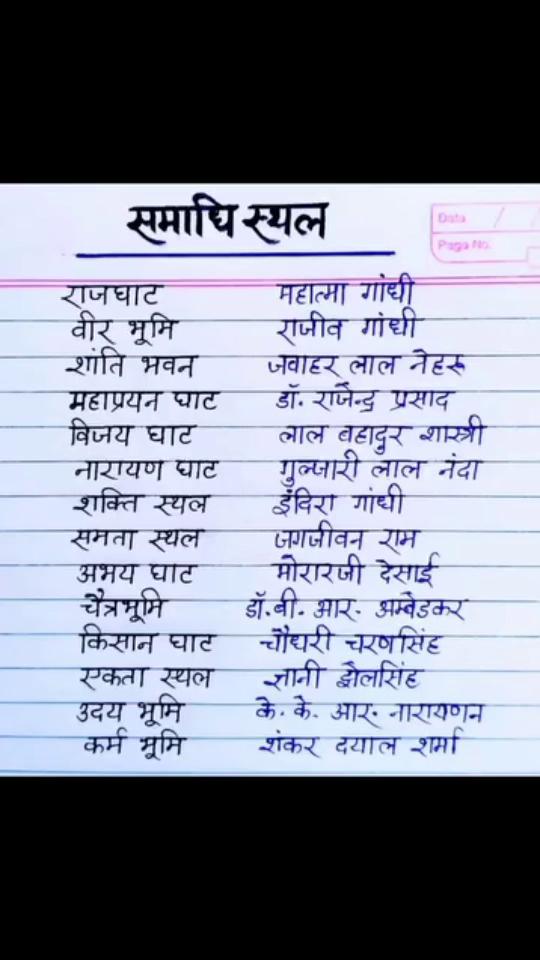 समाधि स्थल
Data / /
Page No.
राजघाट महात्मा गांधी
वीर भूमि राजीव गांधी
शांति भवन जवाहर लाल नेहरू
महाप्रयन घाट डॉ. राजेन्द्र प्रसाद
विजय घाट लाल बहादुर शास्त्री
नारायण घाट गुल्जारी लाल नंदा
शक्ति स्थल इंदिरा गांधी
समता स्थल जगजीवन राम
अभय घाट मोरारजी देसाई
चैत्रभूमि डॉ. बी. आर. अम्बेडकर
किसान घाट चौधरी चरणसिंह
एकता स्थल ज्ञानी झेलसिंह
उदय भूमि के. के. आर. नारायणन
कर्म भूमि शंकर दयाल शर्मा